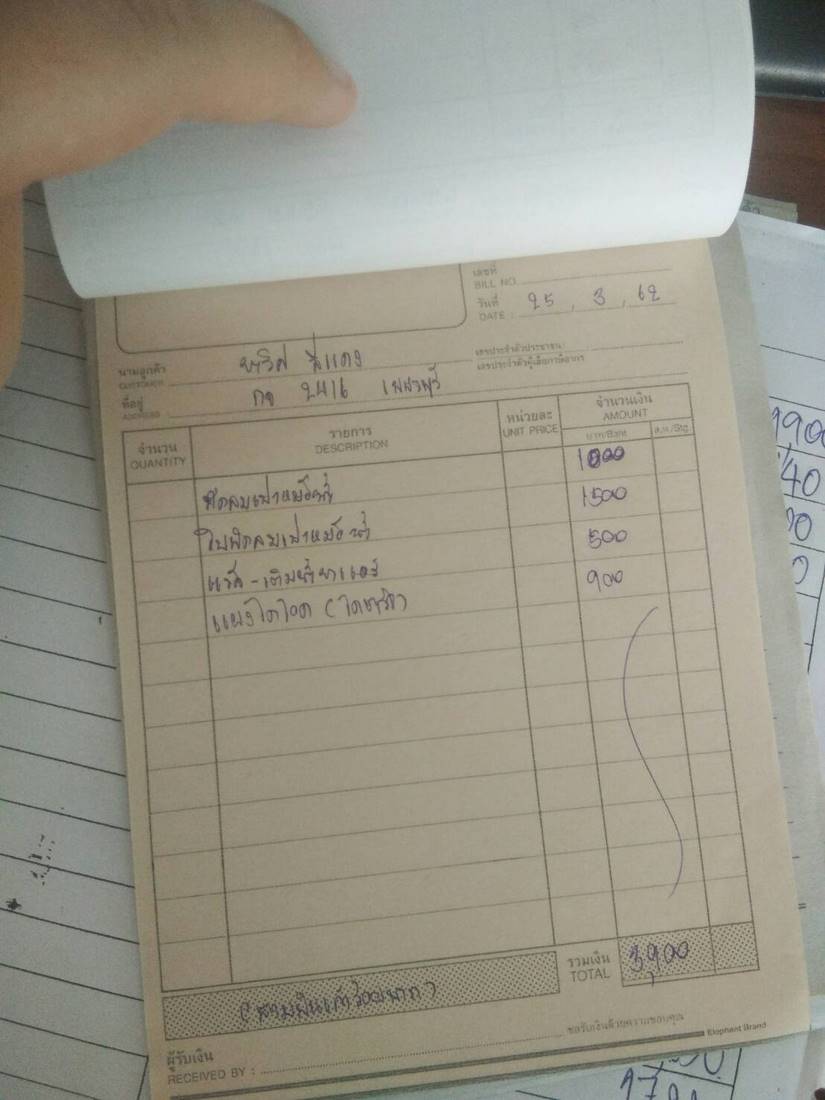 เลขที่
BILL NO.
วันที่
DATE : 25 , 3 , 62
นามลูกค้า
CUSTOMER
เลขประจำตัวประชาชน :
เลขประจำตัวผู้เสียภาษีอากร
ที่อยู่ 2416 เพชรบุรี
ADDRESS
จำนวน รายการ หน่วยละ จำนวนเงิน
QUANTITY DESCRIPTION UNIT PRICE AMOUNT
บาท/Baht ส.ต./Stg.
พัดลมเป่าหม้อน้ำ 1000
ใบพัดลมเป่าหม้อน้ำ 1500
แวค - เติมน้ำยาแอร์ 500
แผงไดโอด ( ไดชาร์จ ) 900
รวมเงิน
TOTAL 3,900
( สามพันเก้าร้อยบาท )
ขอรับเงินด้วยความขอบคุณ
ผู้รับเงิน
RECEIVED BY :
Elephant Brand